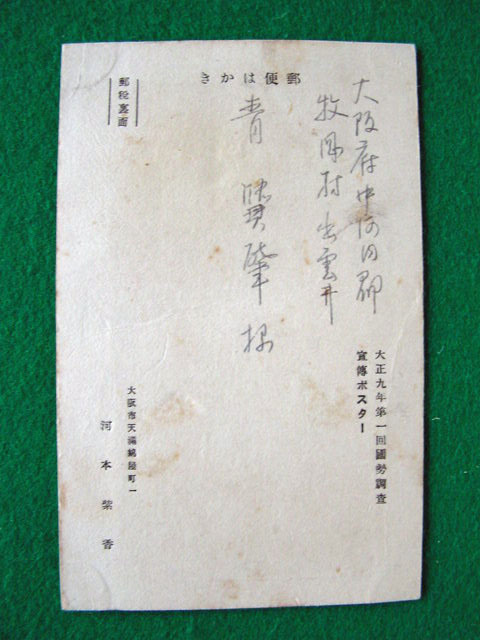 郵便はかき
大阪府中河内郡
枚岡村出雲井
青賢肇様
大正九年第一回國勢調査
宣傳ポスター
郵税裏面
大阪市天満綿屋町一
河本紫香